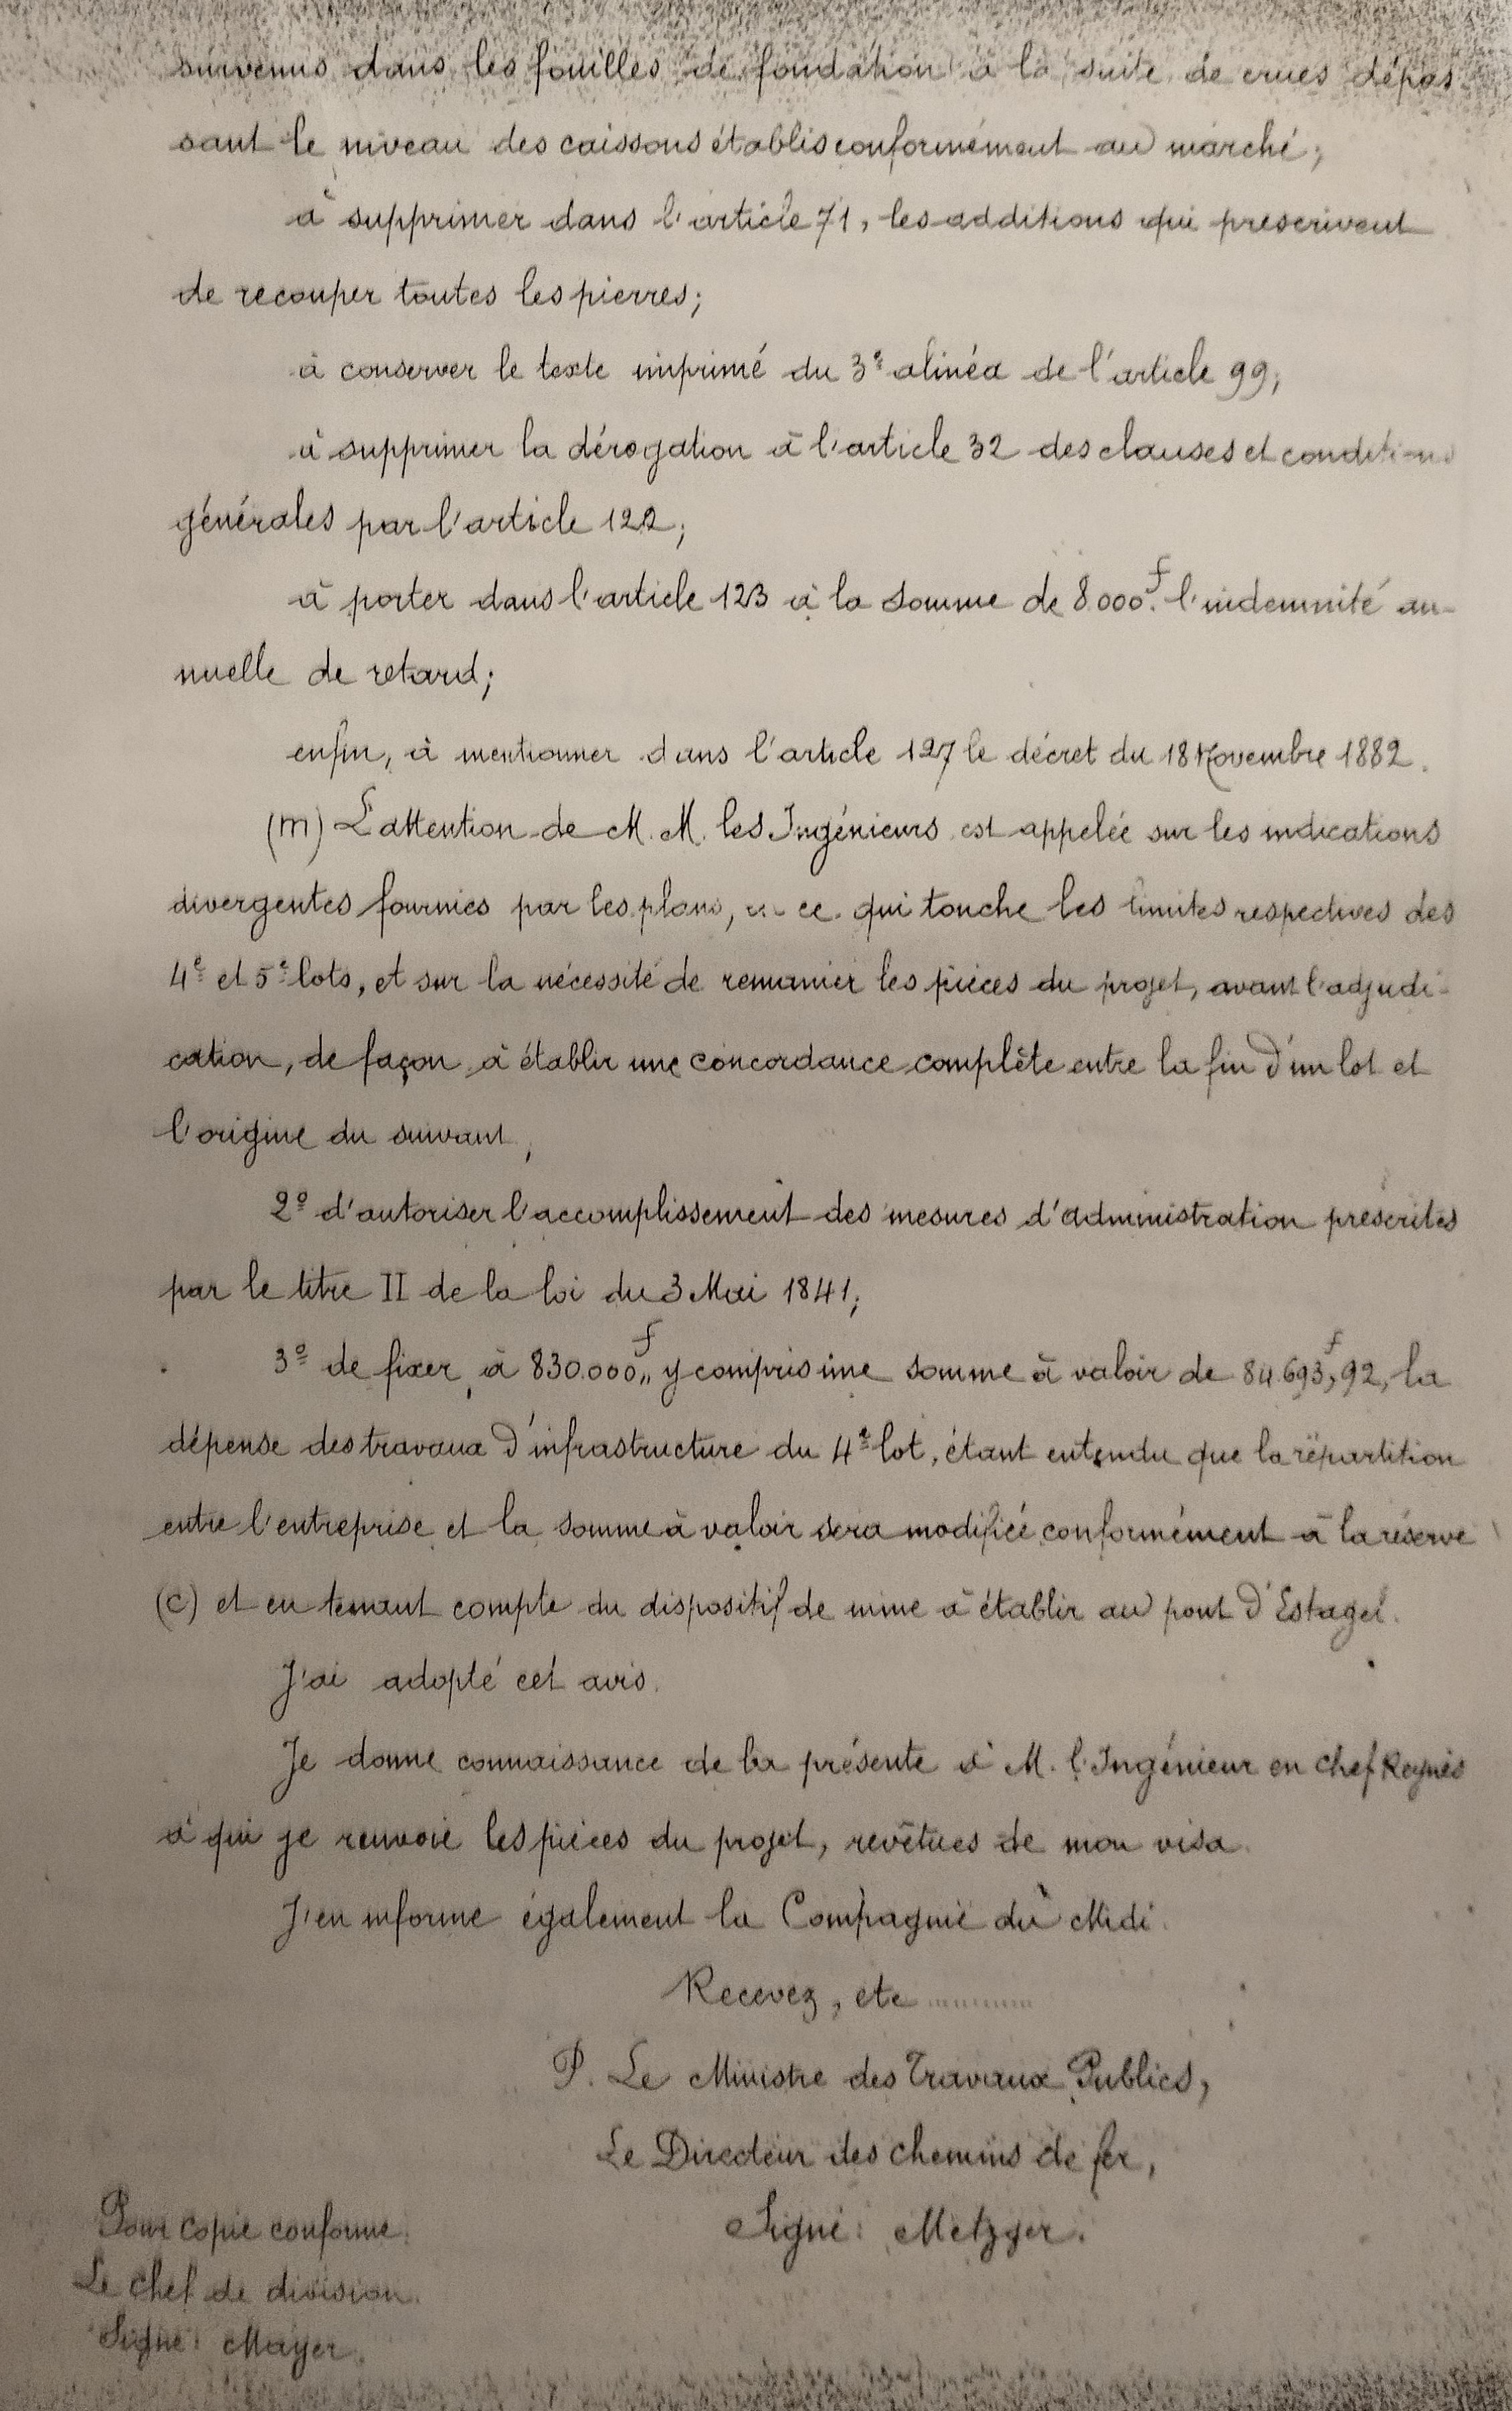 survenus dans les fouilles de fondation à la suite de crues dépas-
sant le niveau des caissons établis conformément au marché;
à supprimer dans l'article 71, les additions qui prescrivent
de recouper toutes les pierres;
à conserver le texte imprimé du 3e alinéa de l'article 99;
à supprimer la dérogation à l'article 32 des clauses et conditions
générales par l'article 122;
à porter dans l'article 123 à la somme de 8.000f. l'indemnité an-
nuelle de retard;
enfin, à mentionner dans l'article 127 le décret du 18 Novembre 1882.
(m) L'attention de M. M. les Ingénieurs est appelée sur les indications
divergentes fournies par les plans, en ce qui touche les limites respectives des
4e et 5e lots, et sur la nécessité de remanier les pièces du projet, avant l'adjudi-
cation, de façon à établir une concordance complète entre la fin d'un lot et
l'origine du suivant;
2o d'autoriser l'accomplissement des mesures d'administration prescrites
par le titre II de la loi du 3 Mai 1841;
3o de fixer à 830.000f,, y compris une somme à valoir de 84.693f,92, la
dépense des travaux d'infrastructure du 4e lot, étant entendu que la répartition
entre l'entreprise et la somme à valoir sera modifiée conformément à la réserve
(c) et en tenant compte du dispositif de mine à établir au pont d'Estagel.
J'ai adopté cet avis.
Je donne connaissance de la présente à M. l'Ingénieur en chef Reynès
à qui je renvoie les pièces du projet, revêtues de mon visa.
J'en informe également la Compagnie du Midi.
Recevez, etc..........
P. Le Ministre des Travaux Publics,
Le Directeur des chemins de fer,
Signé: Metzger.
Pour copie conforme.
Le chef de division.
Signé: Mayer.